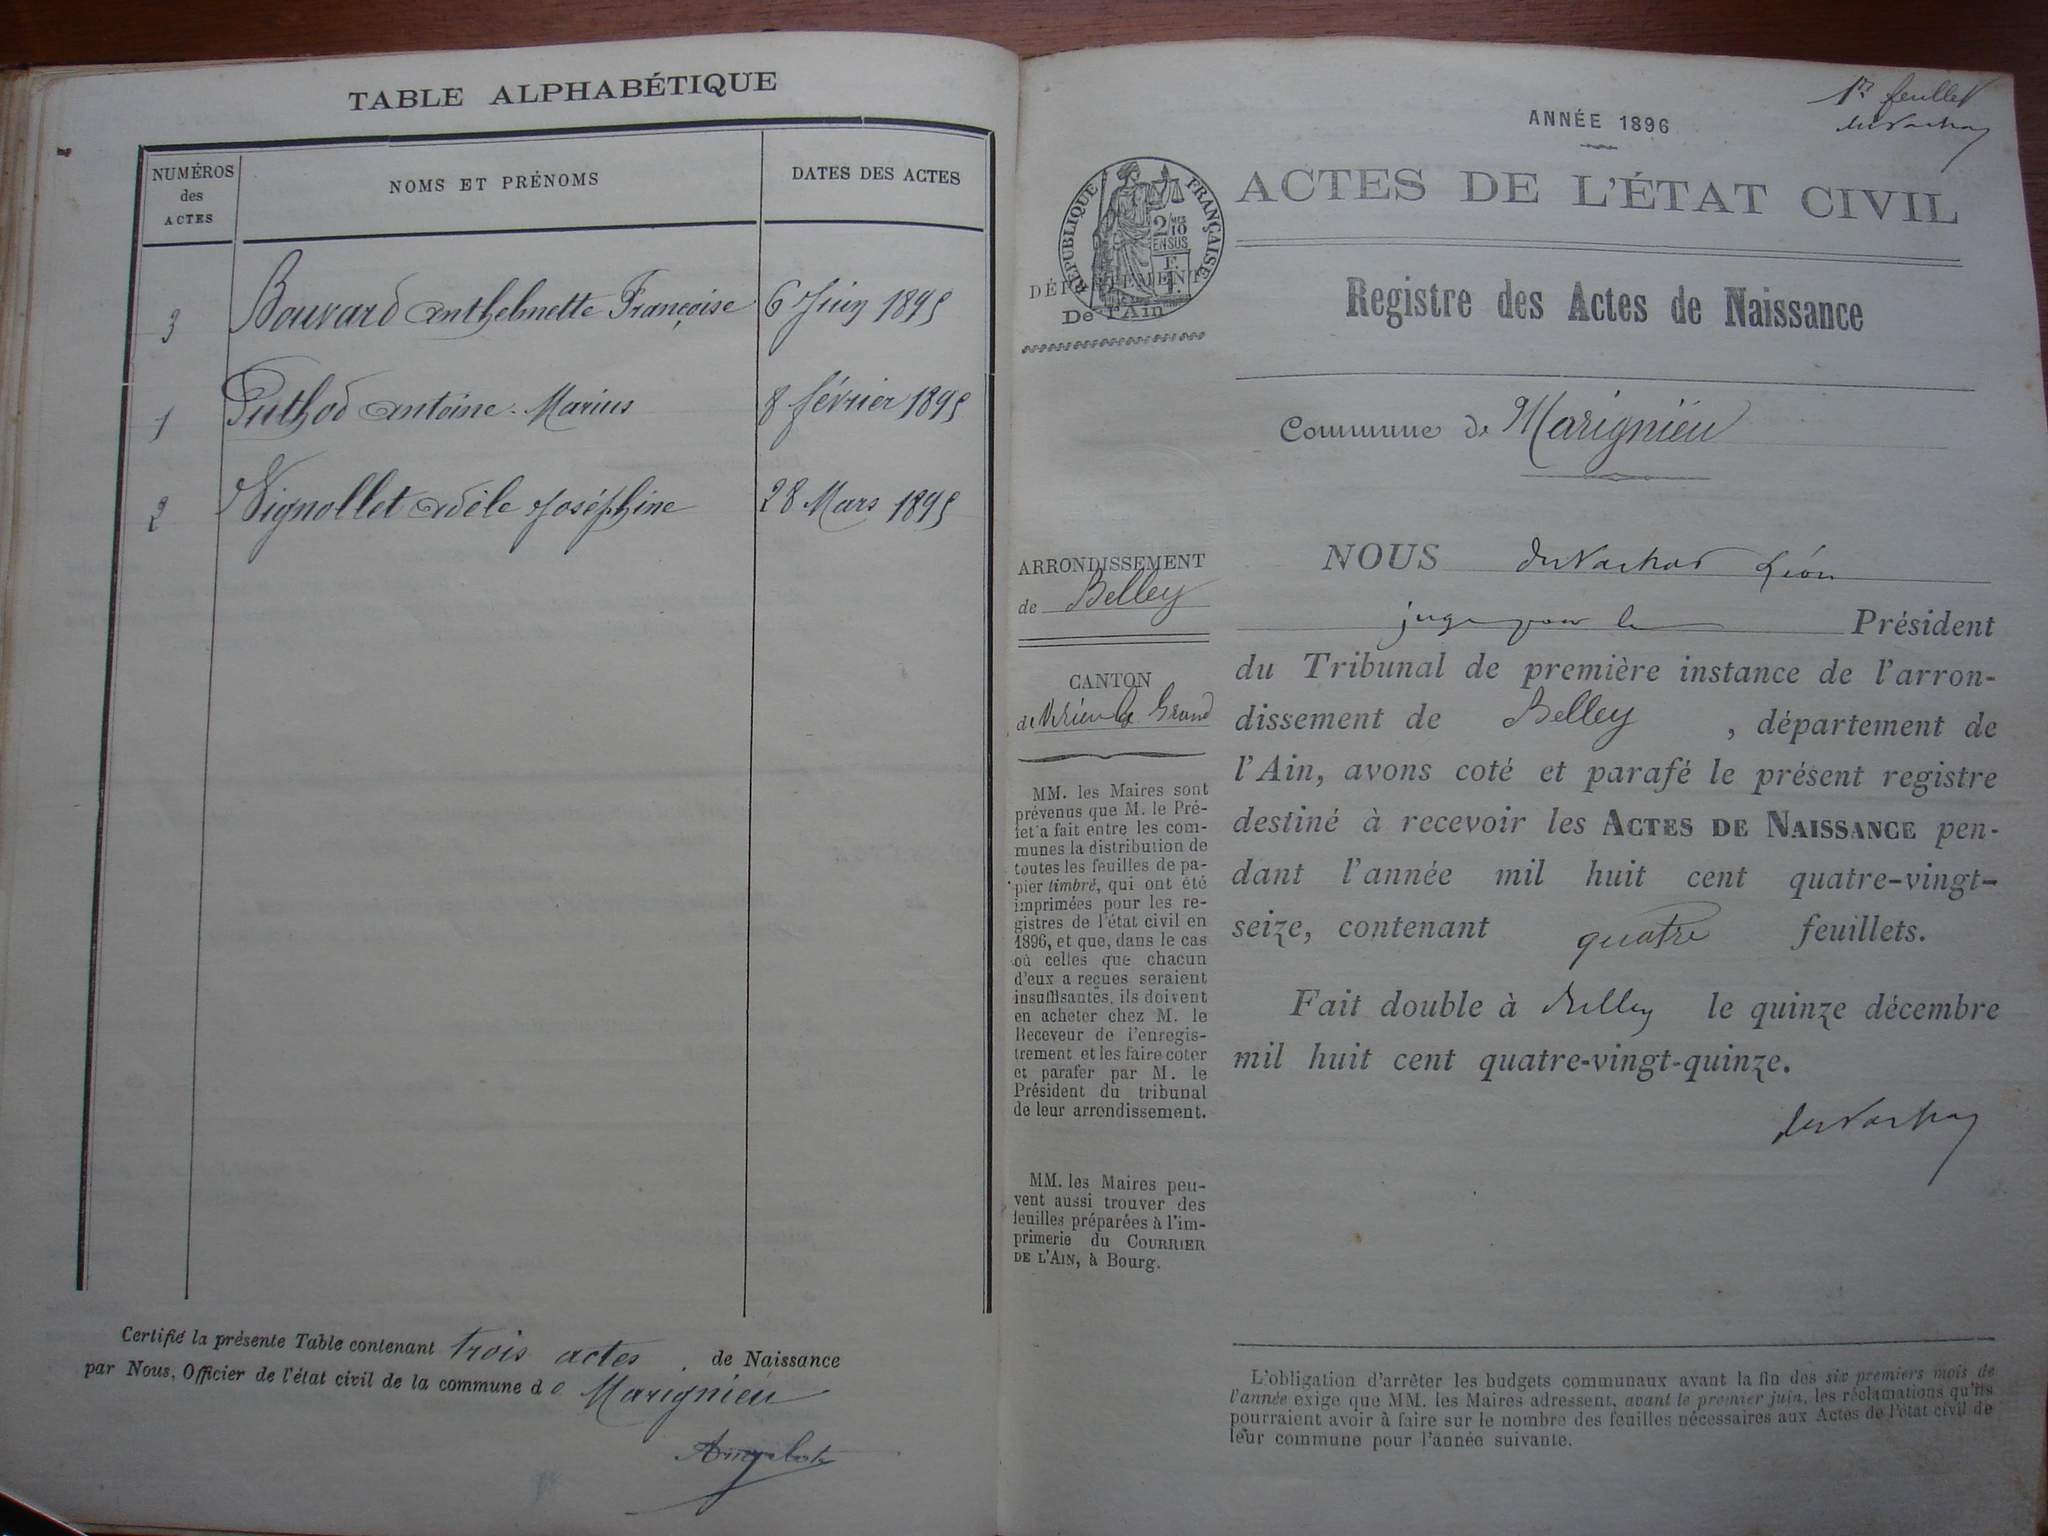 TABLE ALPHABÉTIQUE
NUMÉROS
des
ACTES
NOMS ET PRÉNOMS
DATES DES ACTES
3 Bouvard Anthelmette Françoise 6 Juin 1895
1 Puthod Antoine-Marius 8 février 1895
2 Vignollet Adèle Joséphine 28 Mars 1895
Certifié la présente Table contenant trois actes de Naissance
par Nous, Officier de l'état civil de la commune de Marignieu
1er feuillet
ANNÉE 1896
ACTES DE L'ÉTAT CIVIL
RÉPUBLIQUE FRANÇAISE
DÉPARTEMENT
De l'Ain
Registre des Actes de Naissance
Commune de Marignieu
ARRONDISSEMENT
de Belley
CANTON
de Virieu le Grand
MM. les Maires sont
prévenus que M. le Pré-
fet a fait entre les com-
munes la distribution de
toutes les feuilles de pa-
pier timbré, qui ont été
imprimées pour les re-
gistres de l'état civil en
1896, et que, dans le cas
où celles que chacun
d'eux a reçues seraient
insuffisantes, ils doivent
en acheter chez M. le
Receveur de l'enregis-
trement et les faire coter
et parafer par M. le
Président du tribunal
de leur arrondissement.
MM. les Maires peu-
vent aussi trouver des
feuilles préparées à l'im-
primerie du COURRIER
DE L'AIN, à Bourg.
NOUS Léon
juge pour le Président
du Tribunal de première instance de l'arron-
dissement de Belley, département de
l'Ain, avons coté et parafé le présent registre
destiné à recevoir les ACTES DE NAISSANCE pen-
dant l'année mil huit cent quatre-vingt-
seize, contenant quatre feuillets.
Fait double à Belley le quinze décembre
mil huit cent quatre-vingt-quinze.
L'obligation d'arrêter les budgets communaux avant la fin des six premiers mois de
l'année exige que MM. les Maires adressent, avant le premier juin, les réclamations qu'ils
pourraient avoir à faire sur le nombre des feuilles nécessaires aux Actes de l'état civil de
leur commune pour l'année suivante.